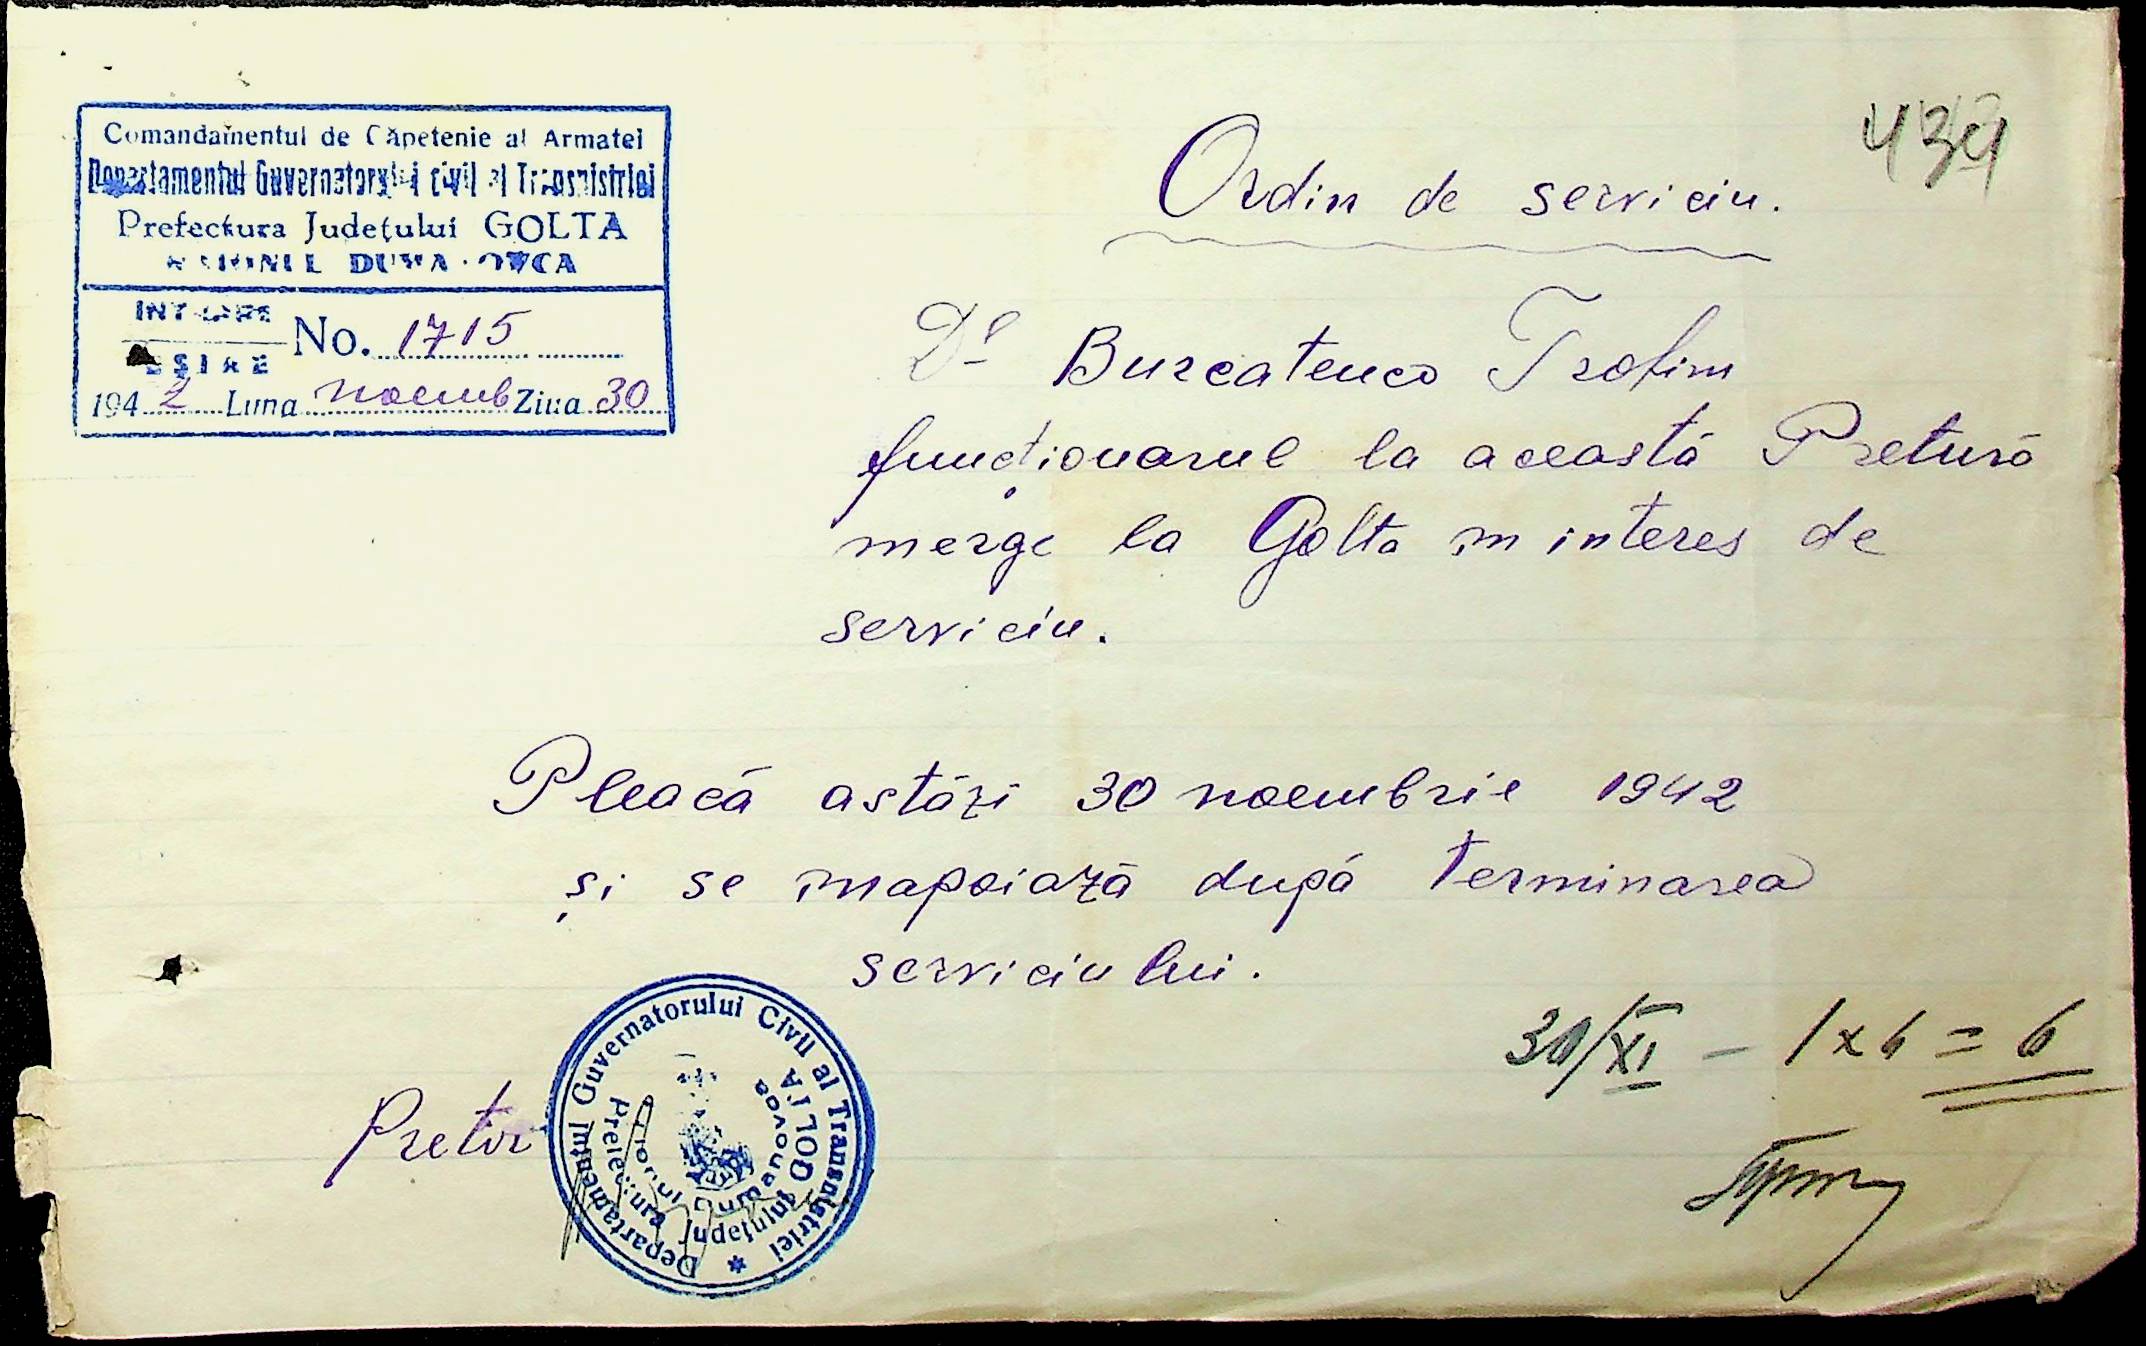 Comandamentul de Căpetenie al Armatei
Departamentul Guvernatorului civil al Transnistriei
Prefectura Județului GOLTA
RAIONUL DUMANOVCA
INTRARE
No. 1715
EȘIRE
1942 Luna noemb Ziua 30
434
Ordin de serviciu.
Dl Burcatenco Trofim
funcționarul la această Pretură
merge la Golta în interes de
serviciu.
Pleacă astăzi 30 noembrie 1942
și se înapoiază după terminarea
serviciului.
30/XI - 1 x 6 = 6
Pretor
Departamentul Guvernatorului Civil al Transnistriei
Prefectura Județului GOLTA
Dumanovca